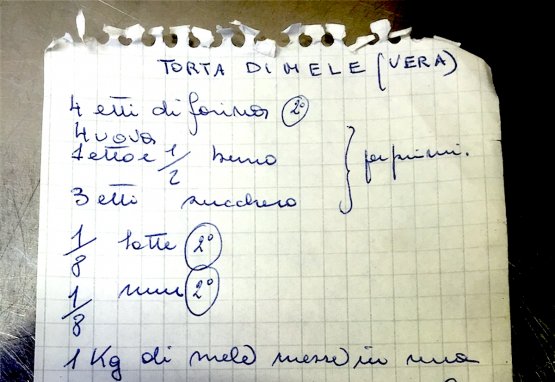 TORTA DI MELE (VERA)
4 etti di farina 2°
4 uova
1 etto e 1/2 burro
per primi.
3 etti zucchero
1/8 latte 2°
1/8 rum 2°
1 Kg di mele messe in una